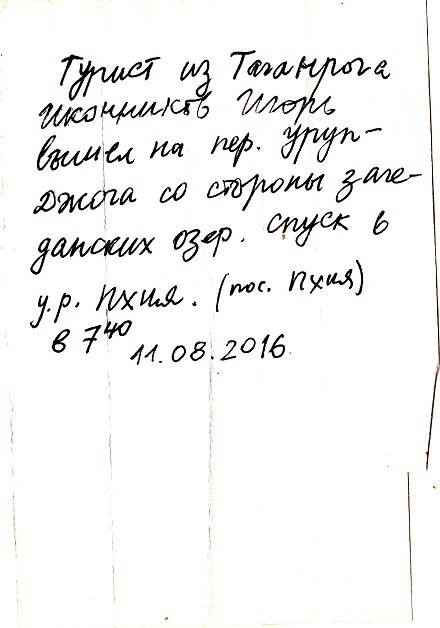 Турист из Таганрога
Иконников Игорь
вышел на пер. Уруп-
Джога со стороны заге-
данских озер. Спуск в
у.р. Пхия. (пос. Пхия)
в 7⁴⁰
11.08.2016